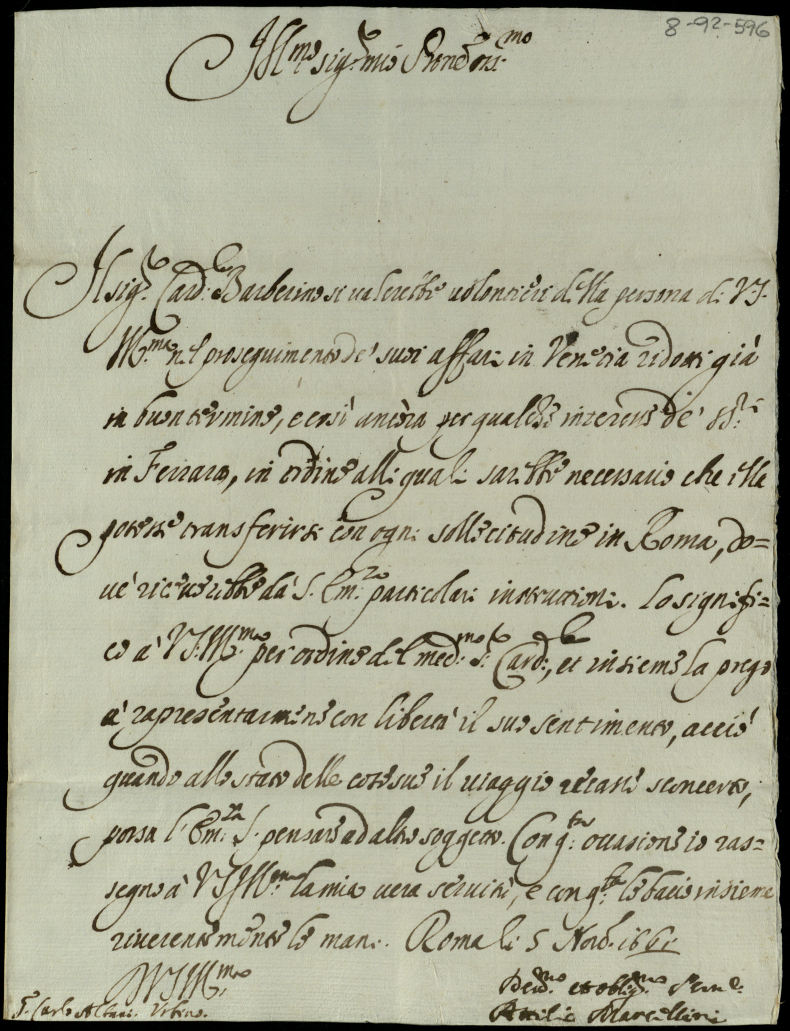 8-92-596
Ill.mo sig.re mio Pron Oss.mo
Il sig.r Card.le Barberino si valerebbe volontieri della persona di V.S.
Ill.ma nel proseguimento de' suoi affari in Venetia ridotti già
in buon termine, e così ancora per qualche interesse de'
in Ferrara, in ordine alli quali sarebbe necessario che ella
potesse transferirsi con ogni sollecitudine in Roma, do=
ve riceverebbe da S. Em.za particolari instruttioni. Lo signifi=
co à V.S. Ill.ma per ordine del med.mo s.r Card.le, et insieme la prego
à rapresentarmene con libertà il suo sentimento, acciò
quando allo stato delle cose sue il viaggio recasse sconcerto,
possa l'Em.za S. pensare ad altro soggetto. Con q.ta occasione io ras=
segno à V.S. Ill.ma la mia vera servitù, e con q.ta le bacio insieme
riverentemente le mani. Roma li 5 Nov.
D V.S. Ill.ma
S.r Carlo Albani. Urbino.
Dev.mo et oblig.mo Ser.re
Attilio Marcellini